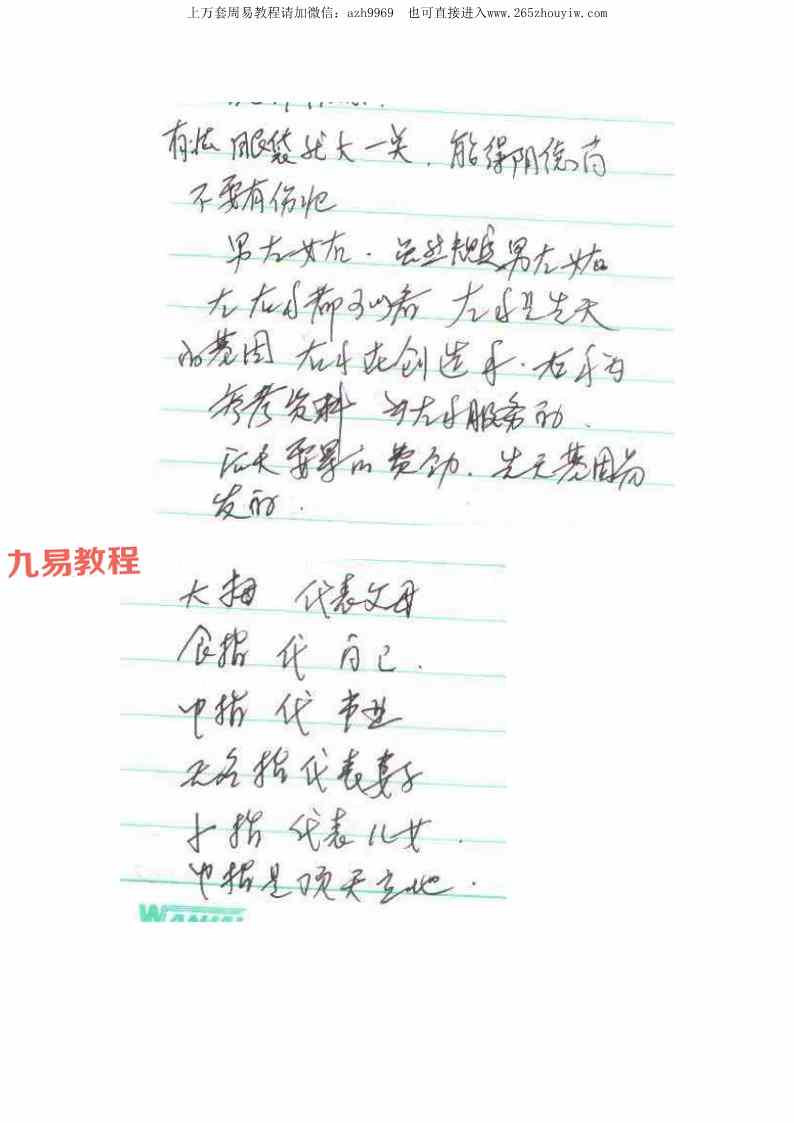 上万套周易教程请加微信：azh9969 也可直接进入www.265zhouyiw.com
眼袋 大一关．能得阴德
不要有伤疤
男左女右．虽然规定男左女右
左右手都可以看 左手是先天
的基因 右手在创造手．右手为
参考资料 为左手服务的．
后天要 的 先天基因
发的．
九易教程
大拇 代表父母
食指 代 自己．
中指 代 事业
无名指代表妻子
小指 代表儿女．
中指是顶天立地．